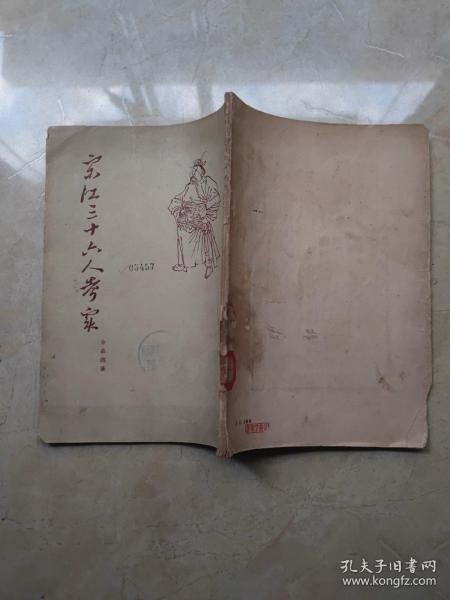 宋江三十六人考实
余嘉锡著
05457
孔夫子旧书网
www.kongfz.com